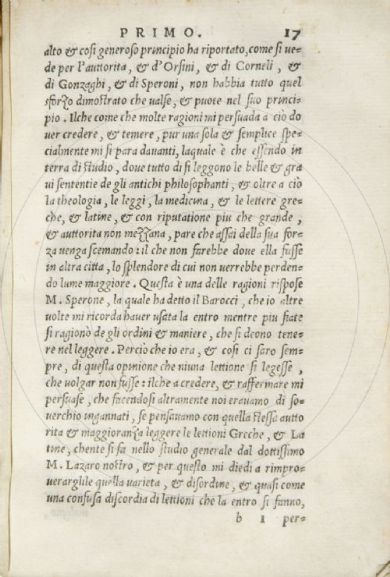 PRIMO. 17
alto & cosi generoso principio ha riportato, come si ue-
de per l'auttorita, & d'Orsini, & di Corneli, & di
di Gonzaghi, & di Speroni, non habbia tutto quel
sforzo dimostrato che ualse, & puote nel suo princi-
pio. Ilche come che molte ragioni mi persuada a ciò do
uer credere, & temere, pur una sola & semplice spe-
cialmente mi si para dauanti, laquale è che essendo in
terra di studio, doue tutto di si leggono le belle & gra
ui sententie de gli antichi philosophanti, & oltre a ciò
la theologia, le leggi, la medicina, & le lettere gre-
che, & latine, & con riputatione piu che grande,
& auttorita non mezzana, pare che assai della sua for
za uenga scemando: il che non farebbe doue ella fusse
in altra citta, lo splendore di cui non uerrebbe perden-
do lume maggiore. Questa è una delle ragioni rispose
M. Sperone, la quale ha detto il Barocci, che io altre
uolte mi ricorda hauer usata la entro mentre piu fiate
si ragionò de gli ordini & maniere, che si deono tene-
re nel leggere. Perciò che io era, & cosi ci saro sem-
pre, di questa opinione che niuna lettione si legesse,
che uolgar non fusse: ilche a credere, & raffermare mi
persuase, che facendosi altramente noi erauamo di so-
uerchio ingannati, se pensauamo con quella stessa autto
rita & maggioranza leggere le lettioni Greche, & La
tine, chente si fa nello studio generale dal dottissimo
M. Lazaro nostro, & per questo mi diedi a rimpro-
uerarglile quella uarieta, & disordine, & quasi come
una confusa discordia di lettioni che la entro si fanno,
b 1 per-